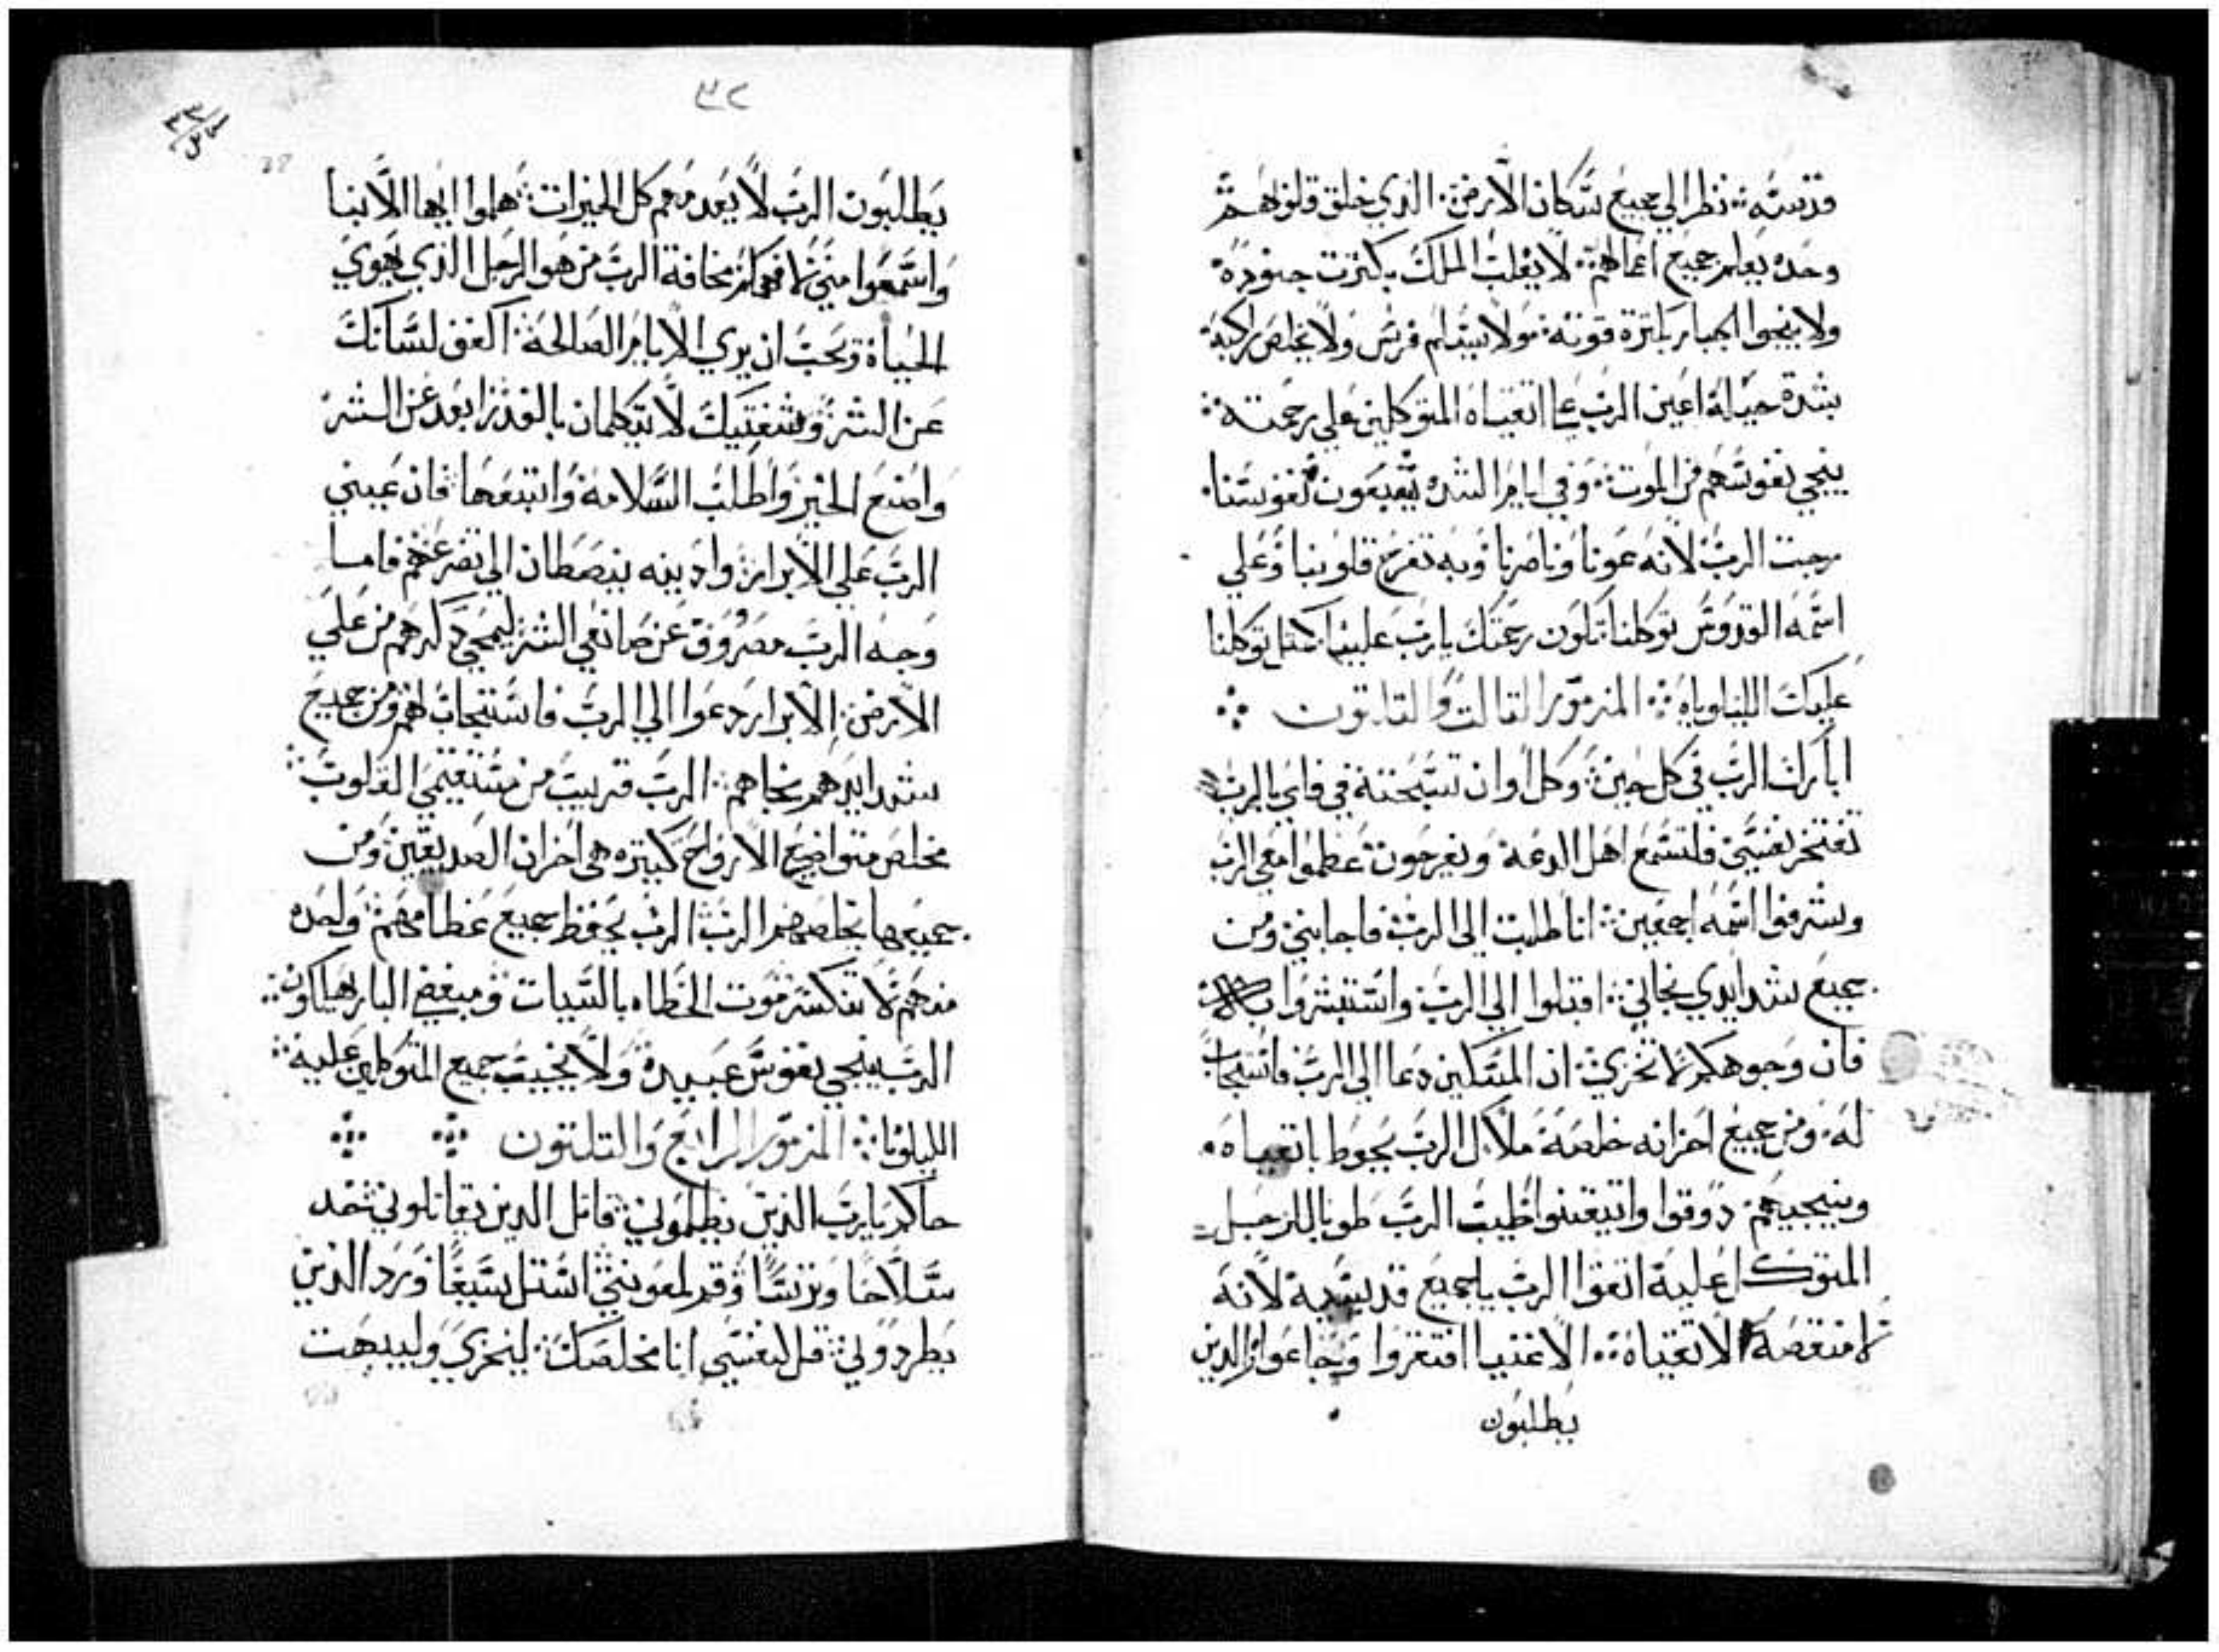 قدسه نظر الي جميع سكان الارض الذي خلق قلوبهم
وحده يعلم جميع اعمالهم لا يغلب الملك بكترت جنوده
ولا ينجوا الجبار بكترة قوته ولا يخلص راكبه
بشدة حياله اعين الرب علي اتقياه المتوكلين علي رحمته
ينجي نفوسهم من الموت وفي ايام الشده نفوسنا
رجت الرب لانه عونا وناصرنا وبه تفرح قلوبنا وعلي
اسمه القدوس توكلنا تكون رحمتك يارب علينا كمتل توكلنا
عليك الليلوياه المزمور التالت والتلتون
ابارك الرب في كل حين وكل اوان تسبحته في فاي بالرب
تفتخر نفسي فلتسمع اهل الدعة ويفرحون عظموا معي الرب
وشرفوا اسمه اجمعين انا طلبت الي الرب فاجابني ومن
جميع شدايدي نجاني اقبلوا الي الرب واستبشروا به
فان وجوهكم لا تخزي ان المسكين دعا الي الرب فاستجاب
له ومن جميع احزانه خلصه ملاك الرب يحوط باتقياه
وينجيهم دوقوا واتيقنوا طيب الرب طوبا للرجل
المتوكل عليه اتقوا الرب يا جميع قديسيه لانه
لا منقصه لاتقياه الاغنيا افتقروا وجاعوا والدين
يطلبون
٣٢
يطلبون الرب لا يعدمهم كل الخيرات هلموا ايها الابنا
واسمعوا مني لافهمكم مخافة الرب من هو الرجل الذي يهوي
الحياة ويحب ان يري الايام الصالحة اكفف لسانك
عن الشر وشفتيك لا تتكلمان بالغدر ابعد عن الشر
واصنع الخير واطلب السلامة واتبعها فان عيني
الرب علي الابرار وادينه ينصطان الي تضرعهم فاما
وجه الرب مصروف عن صانعي الشر ليمحي دكرهم من علي
الارض الابرار دعوا الي الرب فاستجاب لهم ومن جميع
شدايدهم نجاهم الرب قريب من مستقيمي القلوب
مخلص متواضع الارواح كتيره هي احزان الصديقين ومن
جميعها يخلصهم الرب الرب يحفظ جميع عظامهم واحده
منهم لا تنكسر موت الخطاه بالسيات ومبغض البار يهلكون
الرب ينجي نفوس عبيدة ولا يخيب جميع المتوكلين علية
الليلويا المزمور الرابع والتلتون
حاكم يارب الذين يظلموني قاتل الدين يقاتلوني خد
سلاحا وترسا وقم لمعونتي استل سيفا ورد الذين
يطردوني قل لنفسي انا مخلصك ليخزي وليبهت